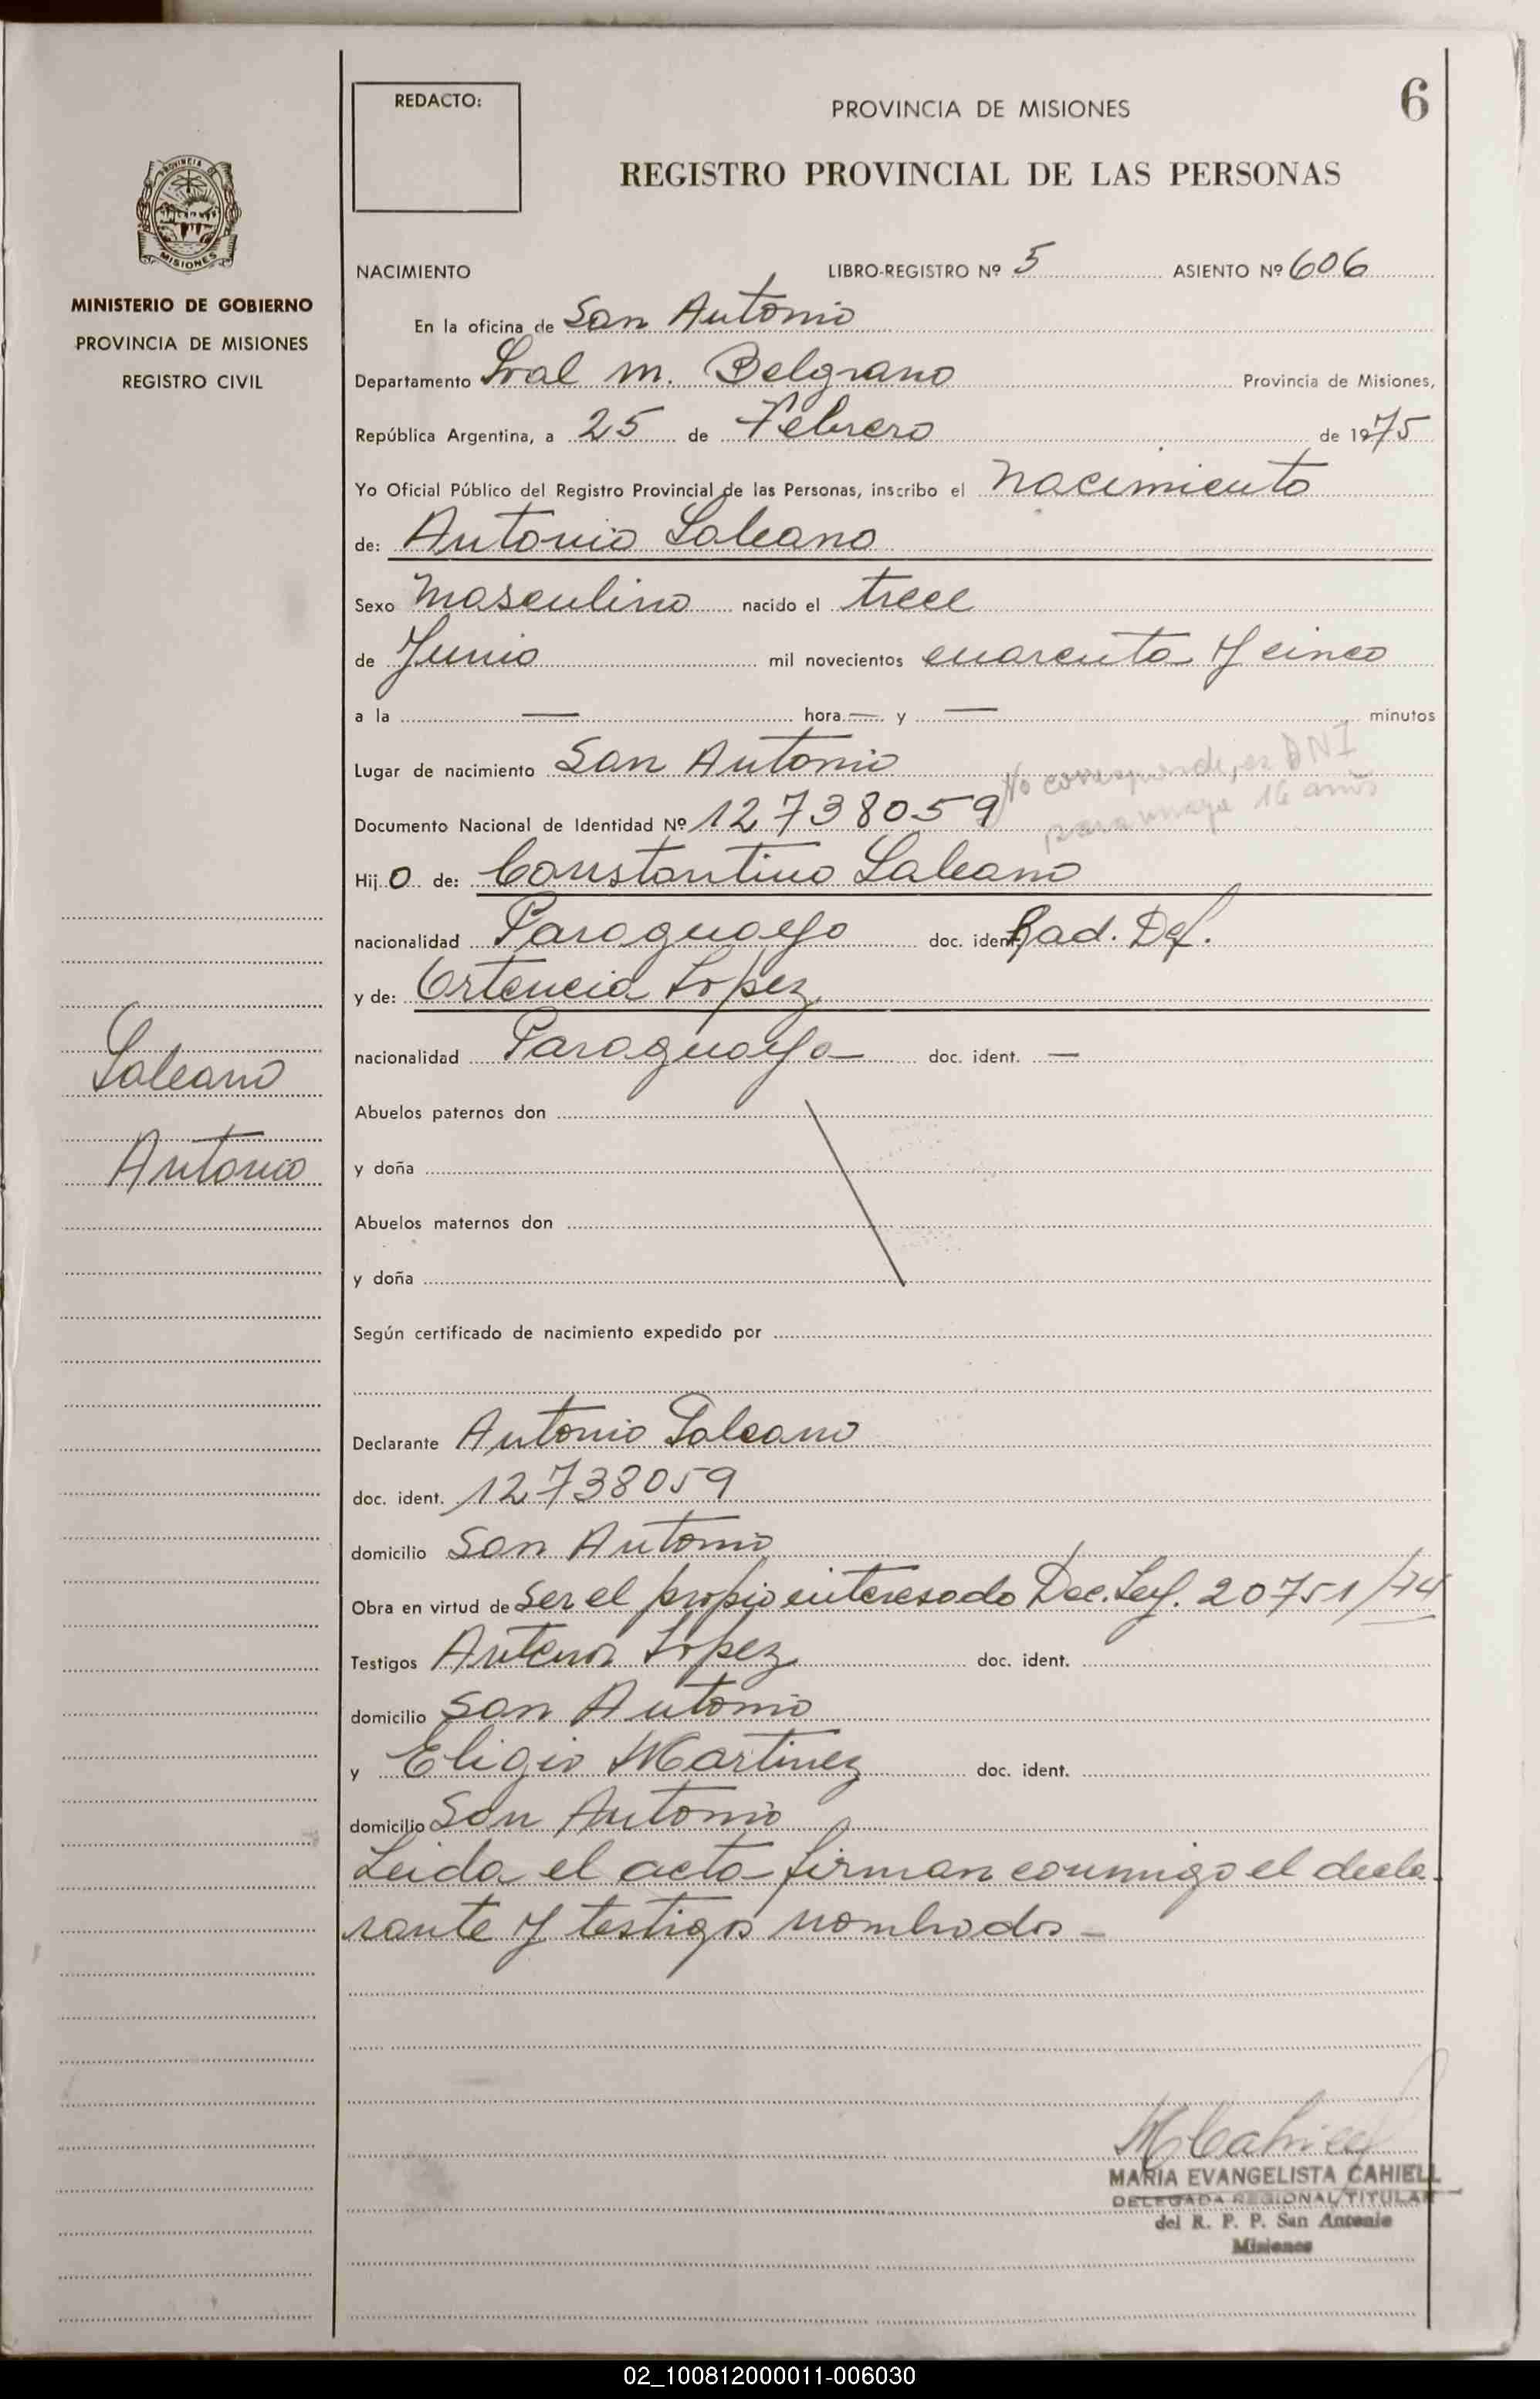 REDACTO:
PROVINCIA DE MISIONES
6
REGISTRO PROVINCIAL DE LAS PERSONAS
PROVINCIA
MISIONES
MINISTERIO DE GOBIERNO
PROVINCIA DE MISIONES
REGISTRO CIVIL
NACIMIENTO LIBRO-REGISTRO Nº 5 ASIENTO Nº 606
En la oficina de San Antonio
Departamento Gral M. Belgrano Provincia de Misiones,
República Argentina, a 25 de Febrero de 1975
Yo Oficial Público del Registro Provincial de las Personas, inscribo el nacimiento
de: Antonio Galeano
Sexo masculino nacido el trece
de Junio mil novecientos cuarenta y cinco
a la — hora — y — minutos
Lugar de nacimiento San Antonio
No corresponde, es DNI
Documento Nacional de Identidad Nº 12738059
para 16 años
Hij o de: Constantino Galeano
nacionalidad Paraguayo doc. ident. Rad. Def.
y de: Ortencia Lopez
nacionalidad Paraguaya doc. ident. —
Galeano
Antonio
Abuelos paternos don
y doña
Abuelos maternos don
y doña
Según certificado de nacimiento expedido por
Declarante Antonio Galeano
doc. ident. 12738059
domicilio San Antonio
Obra en virtud de ser el propio interesado Dec. Ley. 20751/74
Testigos Antena Lopez doc. ident.
domicilio San Antonio
y Eligio Martinez doc. ident.
domicilio San Antonio
Leida el acta firman conmigo el decla-
rante y testigos nombrados -
MCahiell
MARIA EVANGELISTA CAHIELL
DELEGADA REGIONAL TITULAR
del R. P. P. San Antonio
Misiones
02_100812000011-006030